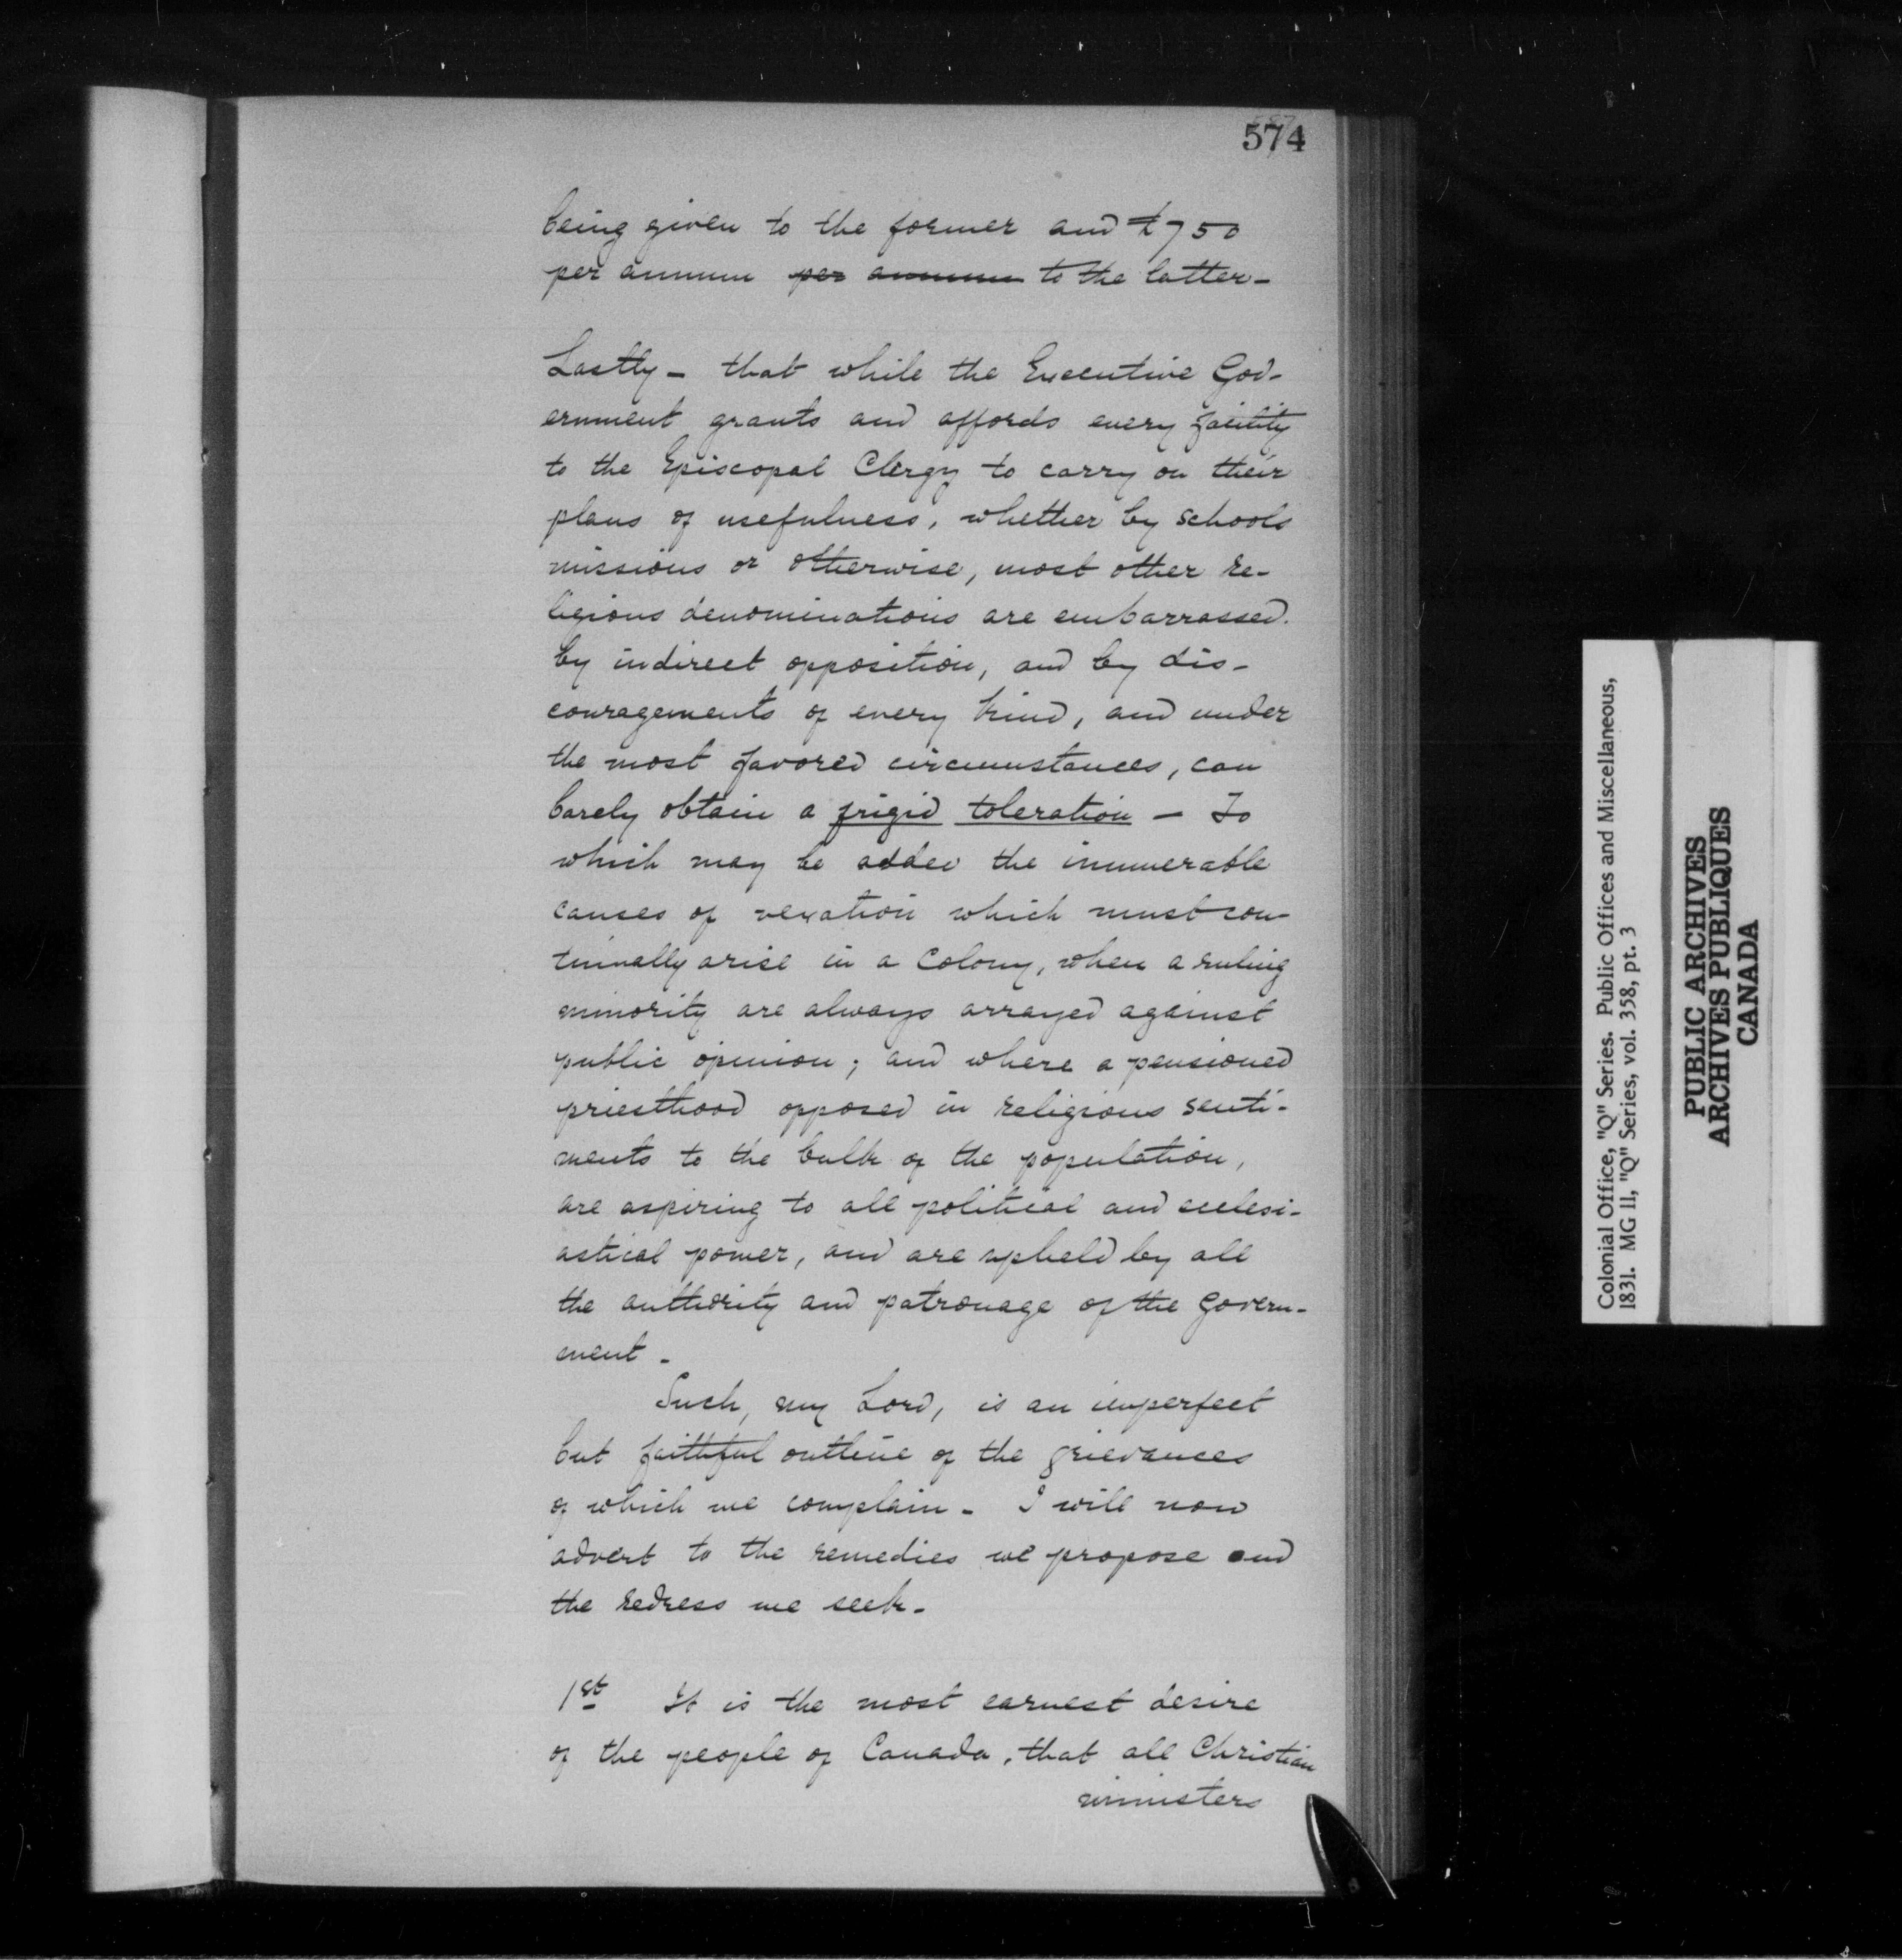 574
being given to the former and £750
per annum per annum to the latter-
Lastly - that while the Executive Gov-
ernment grants and affords every facility
to the Episcopal Clergy to carry on their
plans of usefulness, whether by schools
missions or otherwise, most other re-
ligious denominations are embarrassed.
by indirect opposition, and by dis-
couragements of every kind, and under
the most favored circumstances, can
barely obtain a frigid toleration - To
which may be added the innumerable
causes of vexation which must con-
tinually arise in a Colony, when a ruling
minority are always arrayed against
public opinion; and where a pensioned
priesthood opposed in religious senti-
ments to the bulk of the population,
are aspiring to all political and eclesi-
astical power, and are upheld by all
the authority and patronage of the Govern-
ment -
Such, my Lord, is an imperfect
but faithful outline of the grievances
of which we complain - I will now
advert to the remedies we propose and
the redress we seek -
1st It is the most earnest desire
of the people of Canada, that all Christian
ministers
Colonial Office, "Q" Series. Public Offices and Miscellaneous,
1831. MG 11, "Q" Series, vol. 358, pt. 3
PUBLIC ARCHIVES
ARCHIVES PUBLIQUES
CANADA